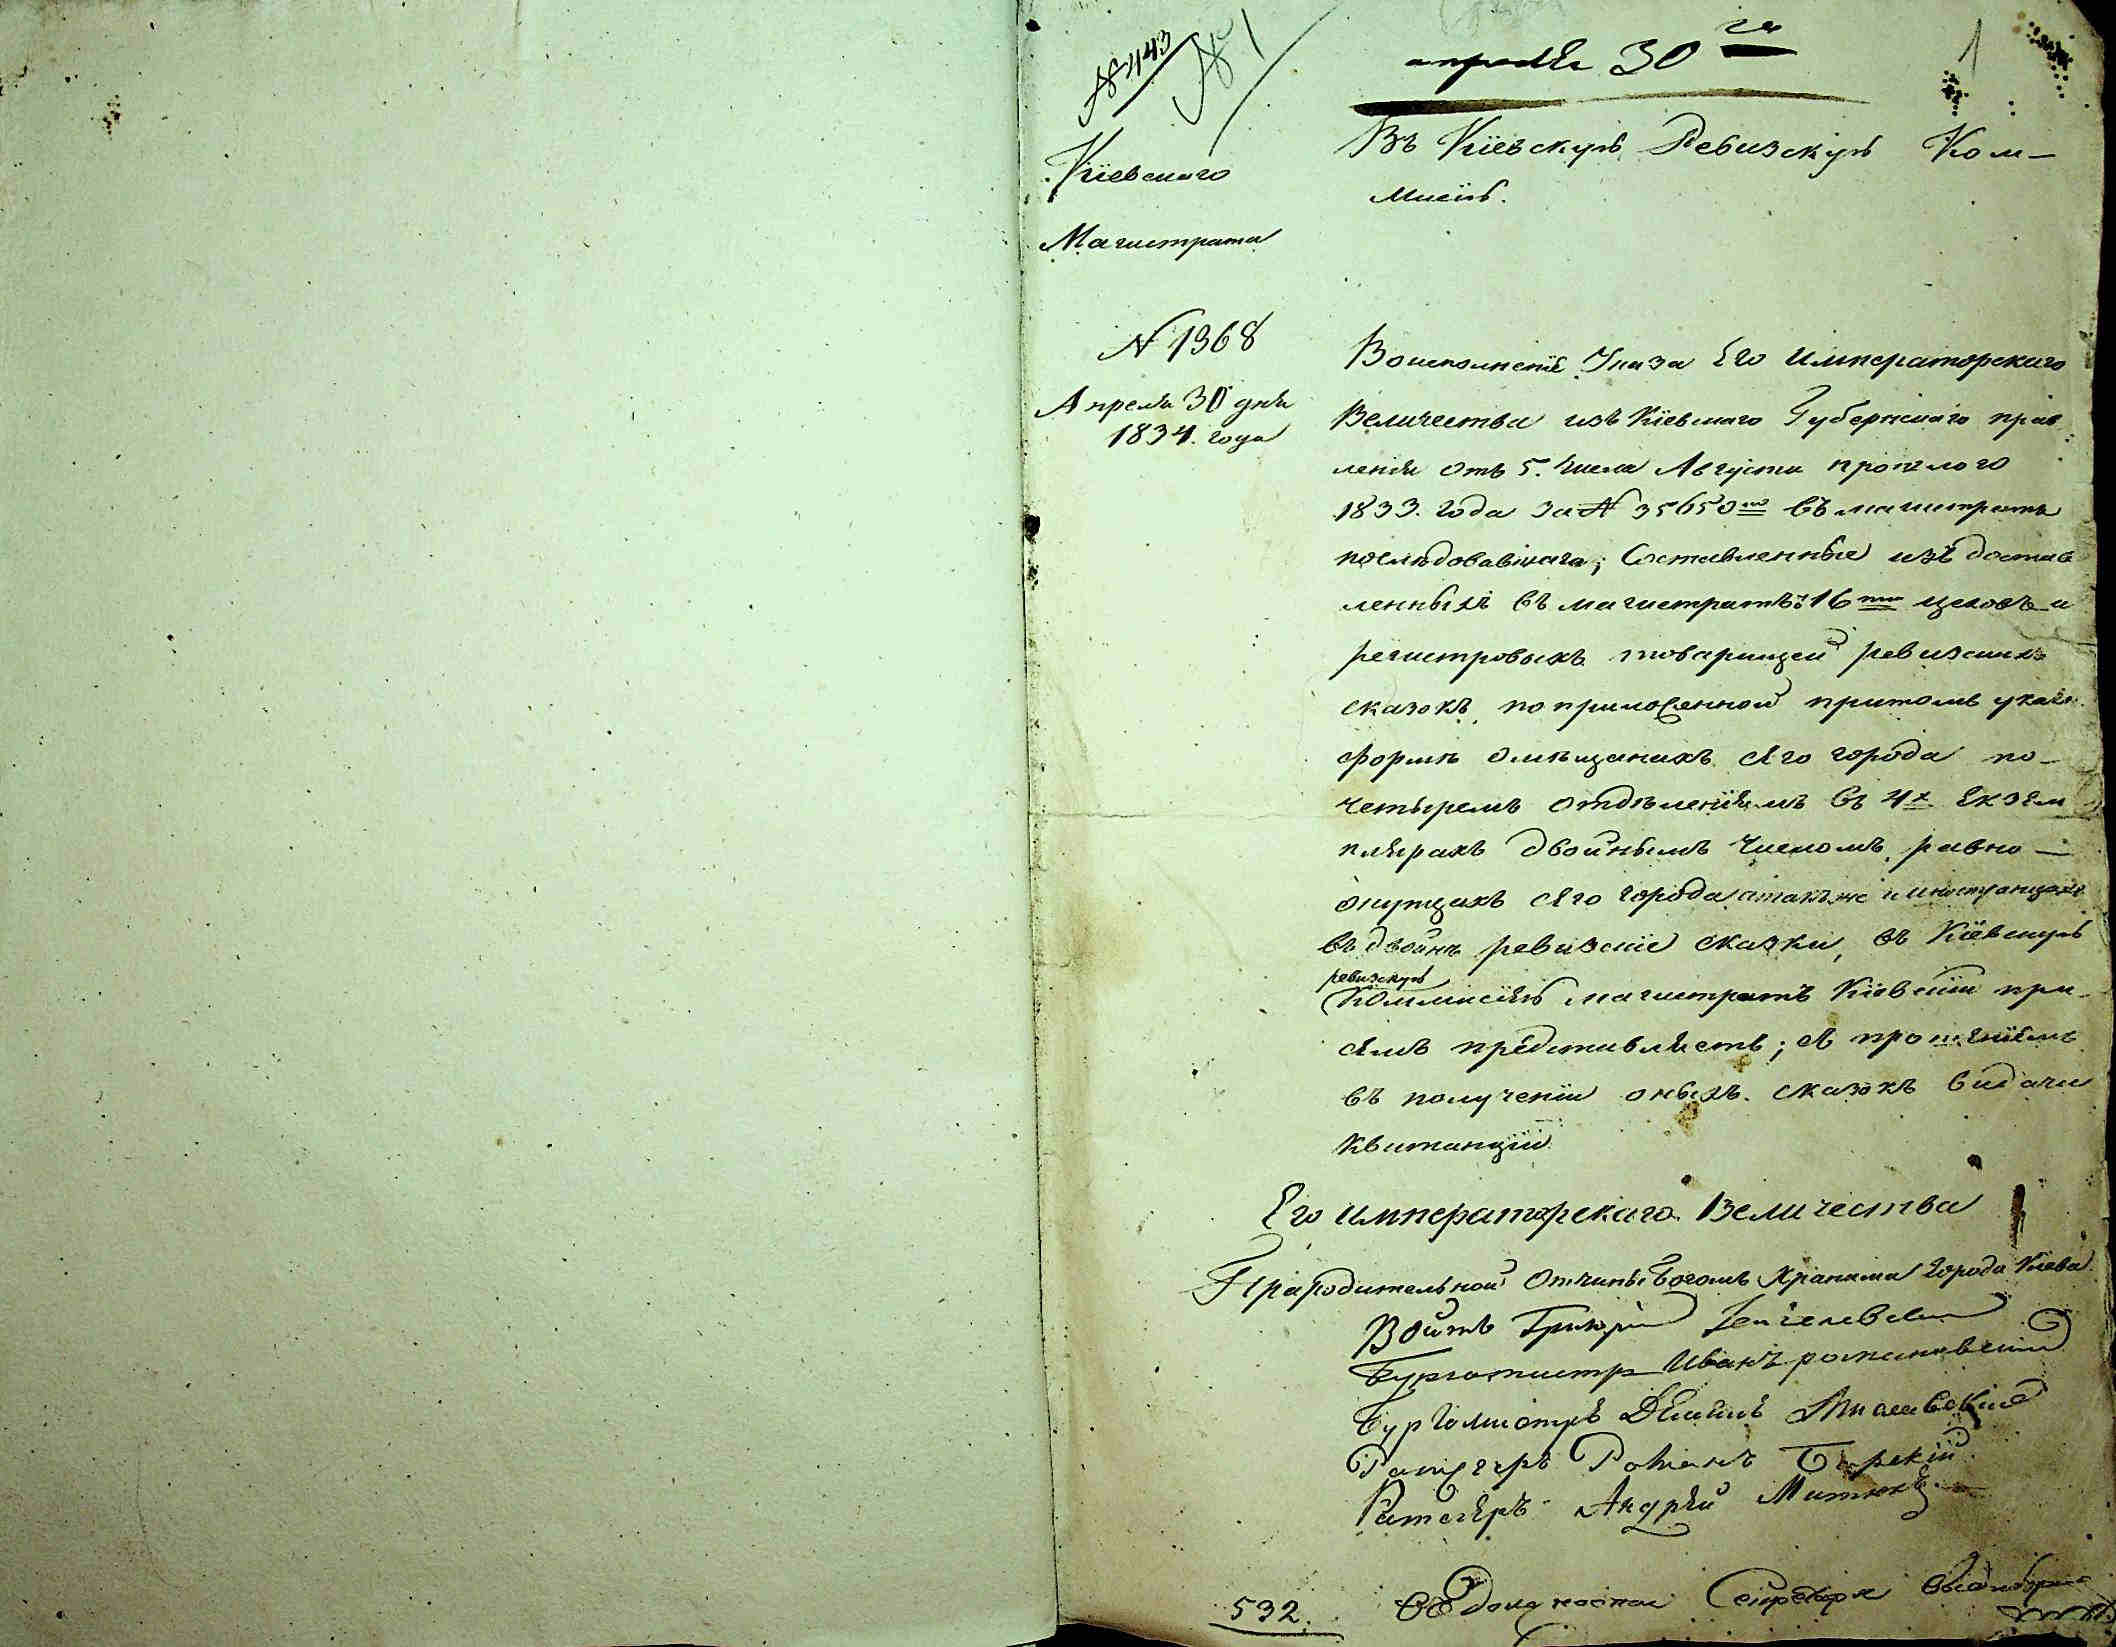 № 443
№ 1
апреля 30 го
1
Въ Кіевскую Ревизскую Ком-
мисію.
Кіевского
Магистрата
N 1368
Апреля 30 дня
1834. года
Во исполненіе Указа Его Императорскаго
Величества изъ Кіевскаго Губернскаго прав
ленія отъ 5. числа Августа прошлого
1833. года за № 35650 мъ въ магистратъ
последовавшаго; Составленные изъ достав
ленныхъ въ магистратъ: 16 ти цеховъ и
регистровыхъ товарищей ревизскихъ
сказокъ, по приложенной притомъ указе
форме о мещанахъ сего города по-
четыремъ отделеніямъ въ 4х екзем
плярахъ двойнымъ числомъ, равно —
о купцахъ сего города а такъже и иностранцахъ
въ двойне ревизскіе сказки, въ Кіевскую
ревизскую
Коммисію магистратъ Кіевскій при
семъ представляетъ; съ прошеніемъ
въ полученіи оныхъ сказокъ видачи
квитанціи.
Его Императорскаго Величества
Прародительной Отчины Богомъ Хранима города Кіева
Войтъ Григорій
Бургомистр Иванъ романовскій
Бургомистръ
Ратгеръ Романъ
Ратсгеръ Андрей Митюкъ.
532.
Въ должности Секретаря